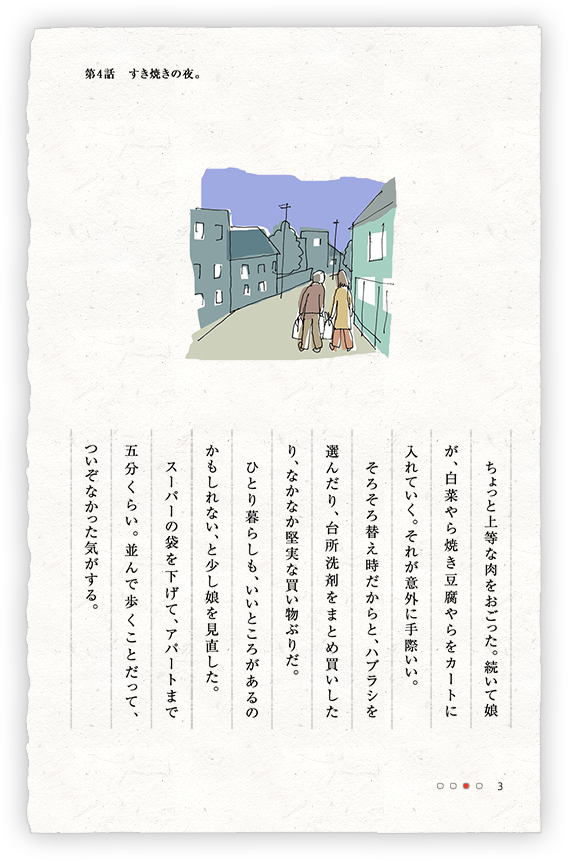 第4話　すき焼きの夜。
　ちょっと上等な肉をおごった。続いて娘
が、白菜やら焼き豆腐やらをカートに
入れていく。それが意外に手際いい。
　そろそろ替え時だからと、ハブラシを
選んだり、台所洗剤をまとめ買いした
り、なかなか堅実な買い物ぶりだ。
　ひとり暮らしも、いいところがあるの
かもしれない、と少し娘を見直した。
　スーパーの袋を下げて、アパートまで
五分くらい。並んで歩くことだって、
ついぞなかった気がする。
3